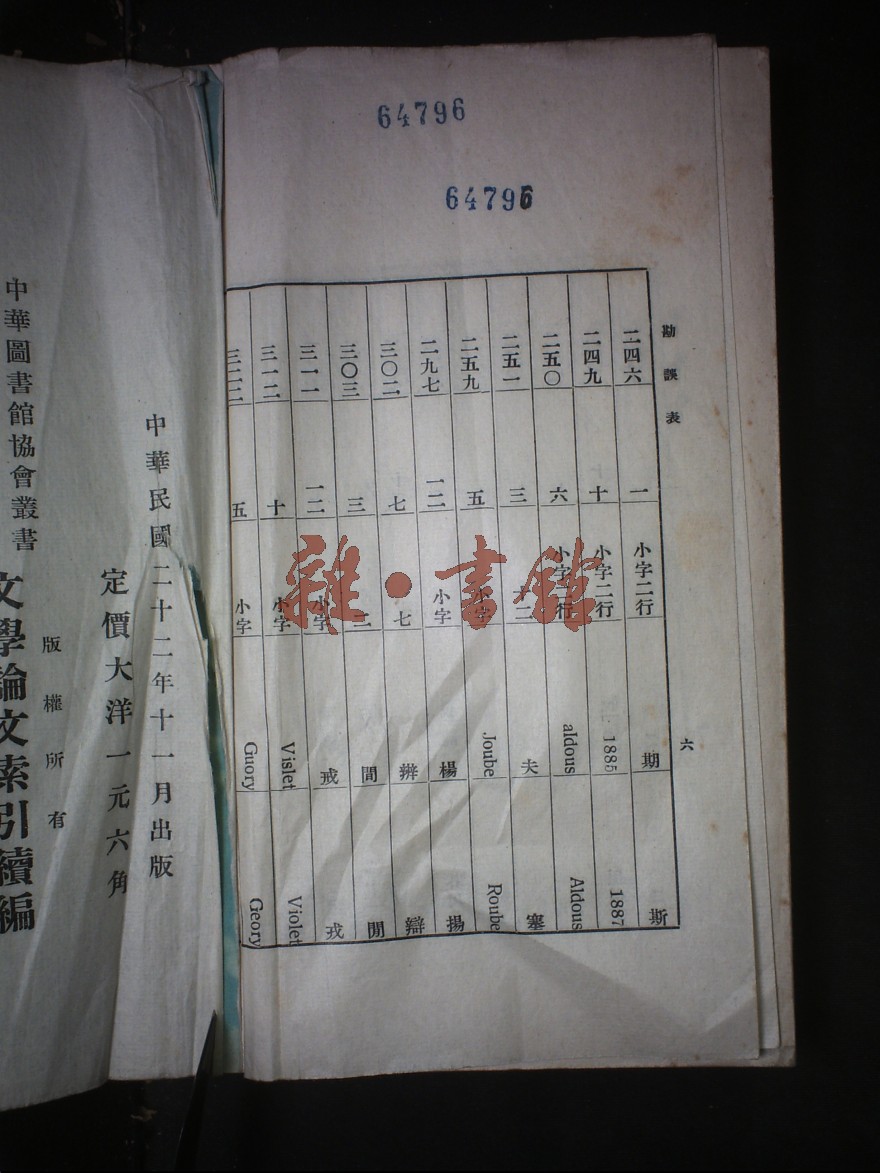 64796
64796
勘誤表
六
二四六 一 小字二行 期 斯
二四九 十 小字二行 1885 1887
二五〇 六 小字二行 aldous Aldous
二五一 三 十二 夫 塞
二五九 五 小字 Joube Roube
二九七 一二 小字 楊 揚
三〇二 七 七 辦 辯
三〇三 三 二 間 閒
三一一 一二 小字 戒 戎
三一二 十 小字 Vislet Violet
三二二 五 小字 Guory Geory
雜·書館
中華民國二十二年十一月出版
定價大洋一元六角
版權所有
中華圖書館協會叢書
文學論文索引續編